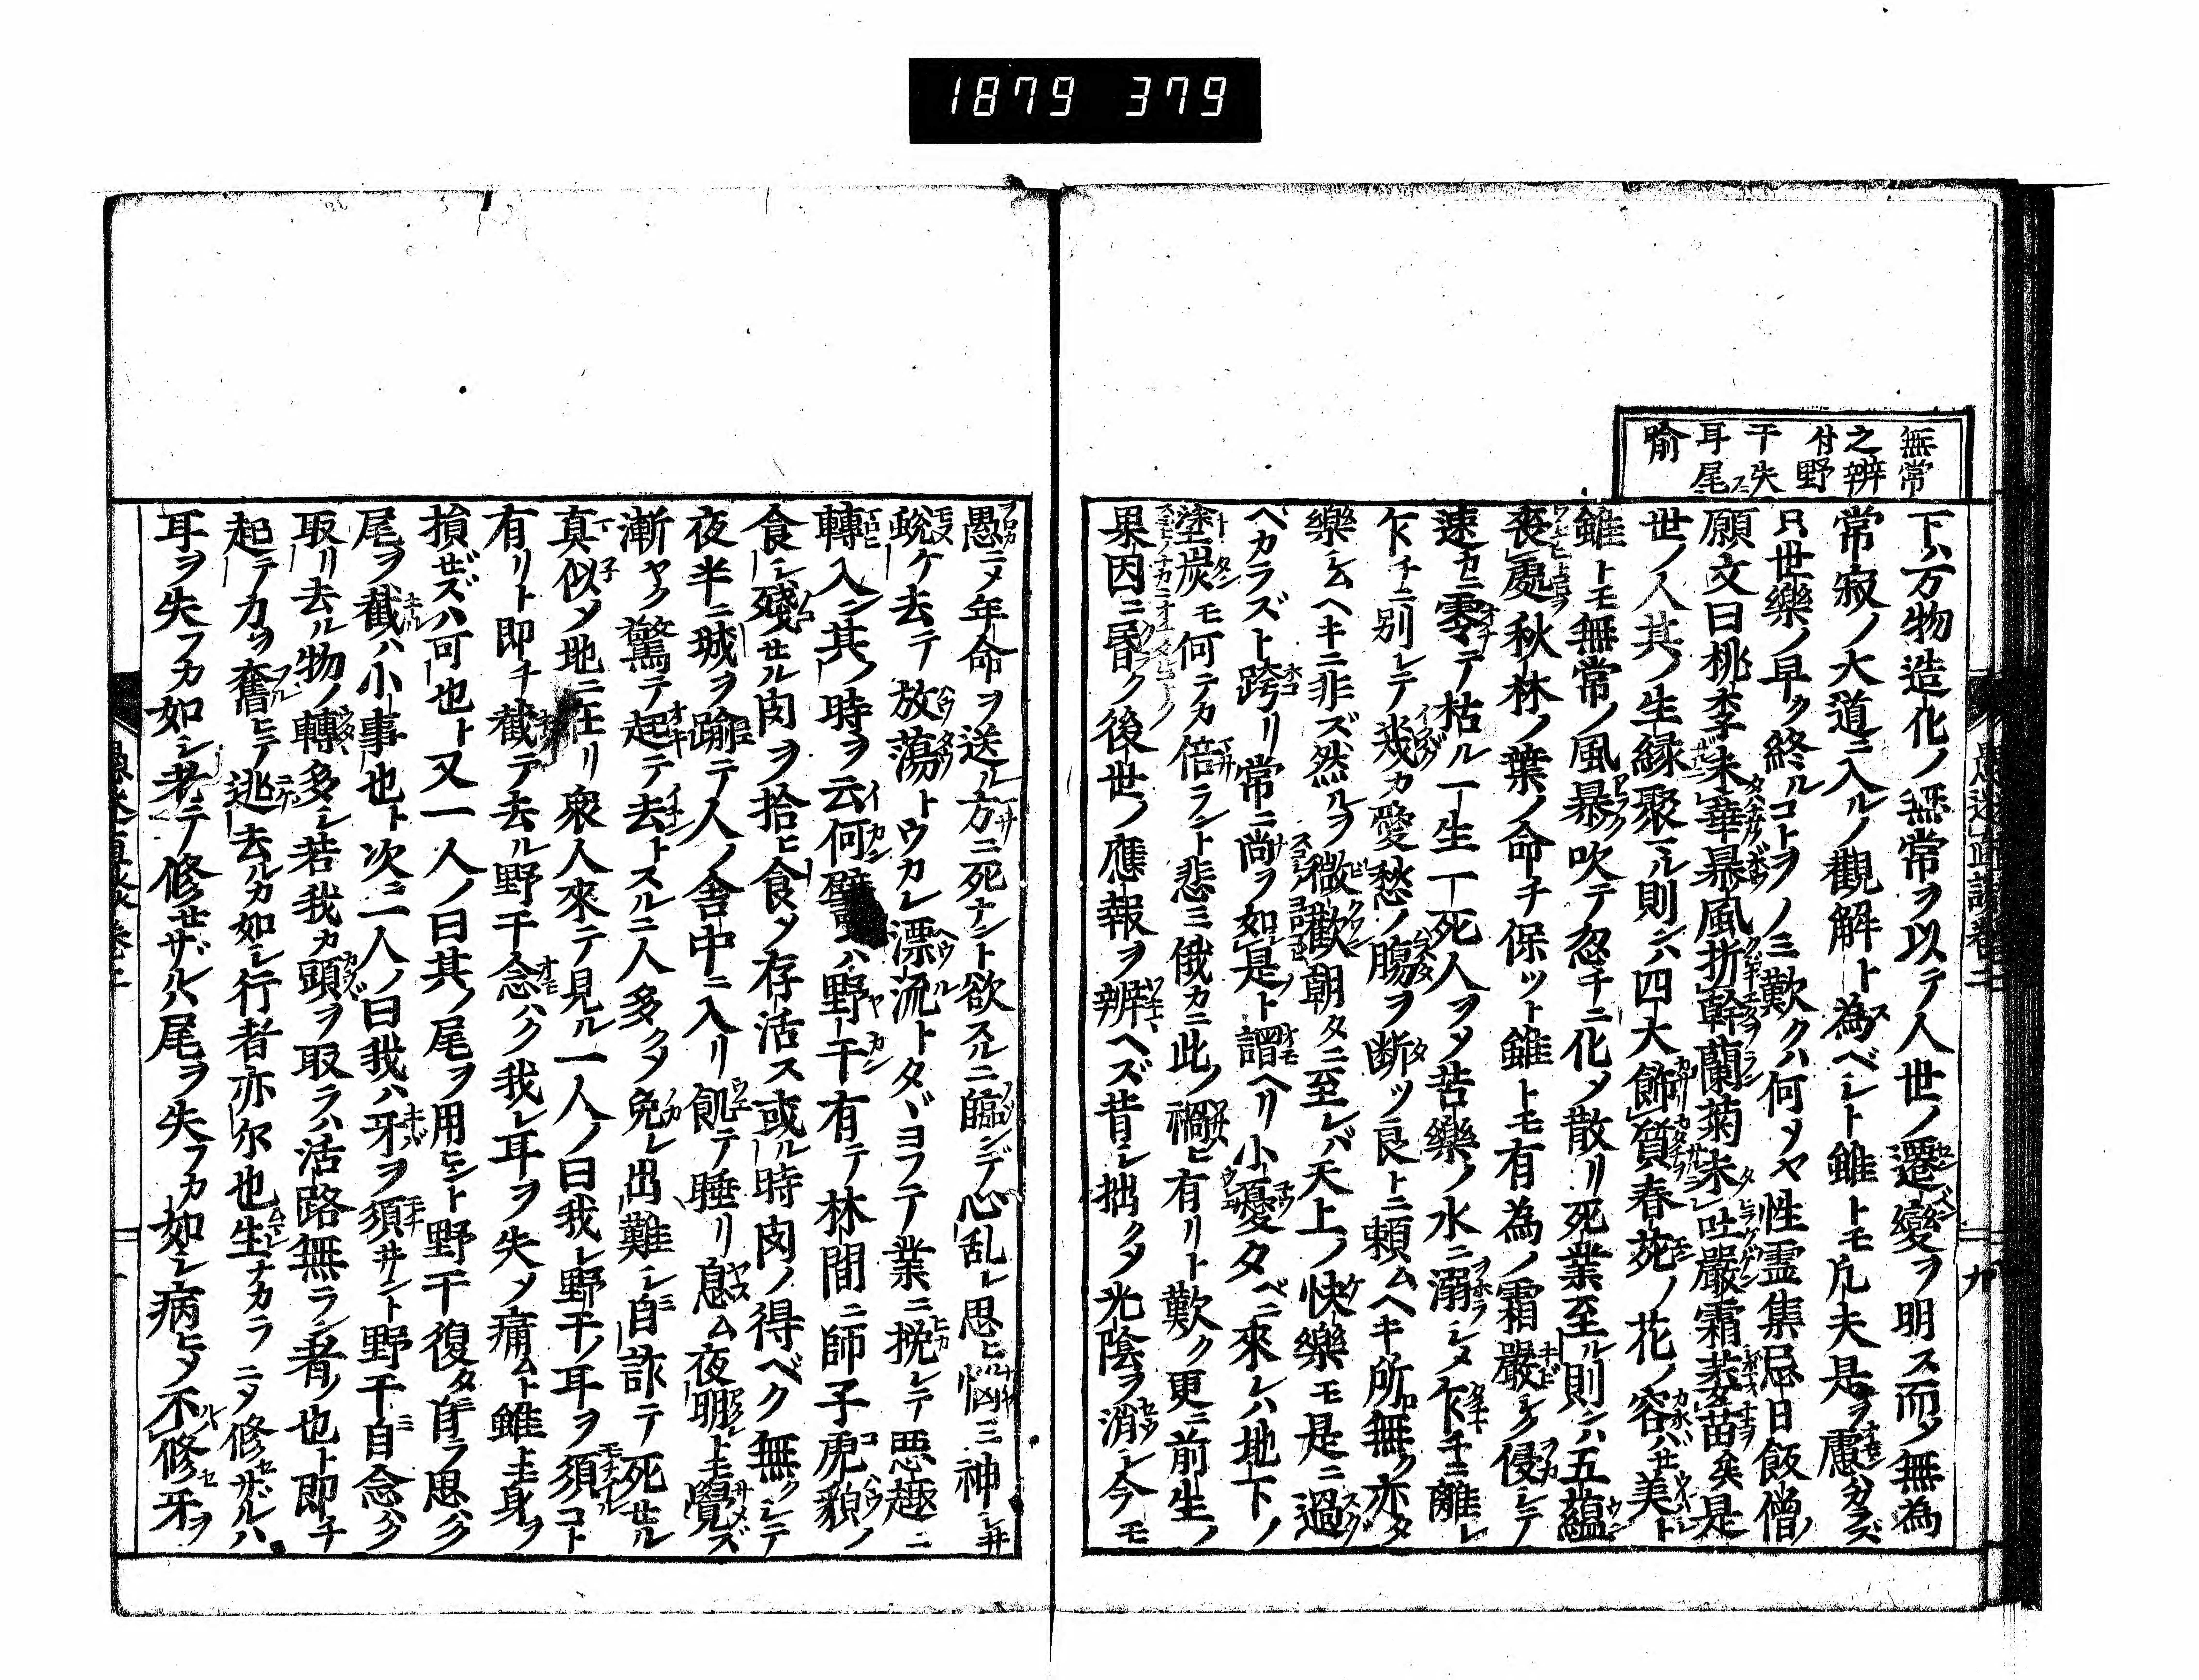 1879 379
無常
之辨
付野
干失
耳尾
喻
下ハ万物造化ノ無常ヲ以テ人世ノ遷變ヲ明ス而〆無為
常寂ノ大道ニ入ルノ觀解ト為ベシト雖トモ凡夫是ヲ慮カラズ
只世樂ノ早ク終ルコトヲノミ歎クハ何ソヤ性霊集忌日飯僧ノ
願文曰桃李未華暴風折幹蘭菊未吐嚴霜萎苗矣是
世ノ人其ノ生縁聚ル則ンハ四大飾質春苑ノ花ノ容ハセ美ト
雖トモ無常ノ風暴吹テ忽チニ化〆散リ死業至ル則ンハ五蘊
喪處秋林ノ葉ノ命チ保ツト雖トモ有為ノ霜嚴シク侵シテ
速カニ零テ枯ル一生一死人ヲ〆苦樂ノ水ニ溺レ〆乍チニ離レ
乍チニ別レテ幾カ愛愁ノ腸ヲ断ツ良トニ賴ムヘキ所無ク亦タ
樂シムヘキニ非ズ然ルヲ微歡朝タニ至レバ天上ノ快樂モ是ニ過
ベカラズト跨リ常ニ尚ヲ如是ト謂ヘリ小憂夕ベニ來レハ地下ノ
塗炭モ何テカ倍ラント悲ミ俄カニ此ノ禍ヒ有リト歎ク更ニ前生ノ
果因ニ昏ク後世ノ應報ヲ辨ヘズ昔シ拙ク〆光陰ヲ消シ今モ
愚ニ〆年命ヲ送ル方ニ死ナント欲スルニ臨ンデ心乱レ思ヒ悩ミ神シ井
蛻ケ去テ放蕩トウカレ漂流トタヾヨフテ業ニ挽レテ悪趣ニ
轉入ン其ノ時ヲ云何譬ハ野干有テ林間ニ師子虎貌ノ
食シ殘セル肉ヲ拾ヒ食〆存活ス或ル時肉ノ得ベク無クシテ
夜半ニ城ヲ踰テ人ノ舎中ニ入リ飢テ睡リ息ム夜明レトモ覺ズ
漸ヤク驚テ起テ去ントスルニ人多ク〆免レ出難シ自ニ詐テ死セル
真似〆地ニ在リ衆人來テ見ル一人ノ曰我レ野干ノ耳ヲ須コト
有リト即チ截テ去ル野干念ハク我レ耳ヲ失〆痛ムト雖トモ身ヲ
損ゼズハ可也ト又一人ノ曰其ノ尾ヲ用ヒント野干復タ自ラ思ハク
尾ヲ截ハ小事也ト次ニ一人ノ曰我ハ牙ヲ須井ント野干自ニ念ハク
取リ去ル物ノ轉多シ若我カ頭ヲ取ラハ活路無ラン者ノ也ト即チ
起テ力ヲ奮ヒテ逃去ルカ如シ行者亦尓也生ナカラニ〆修セザルハ
耳ヲ失フカ如シ老テ修セザルハ尾ヲ失フカ如シ病ヒ〆不修牙ヲ